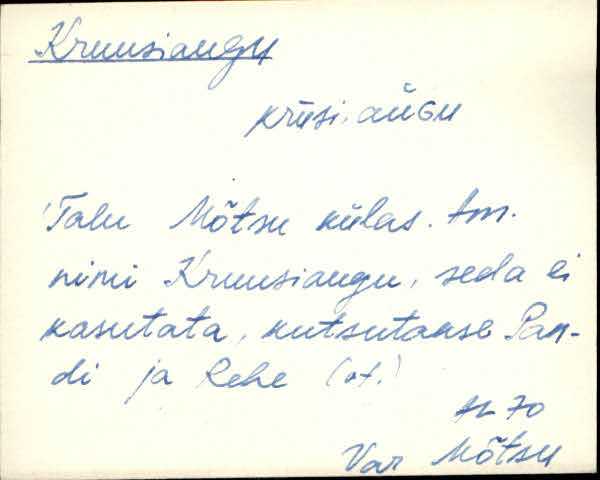 Kruusiaugu
krūsi-aūGu
Talu Mõtsu külas. Am.
nimi Kruusiaugu, seda ei
kasutata, kutsutakse Pan-
di ja Rehe (vt.)
70
Var Mõtsu